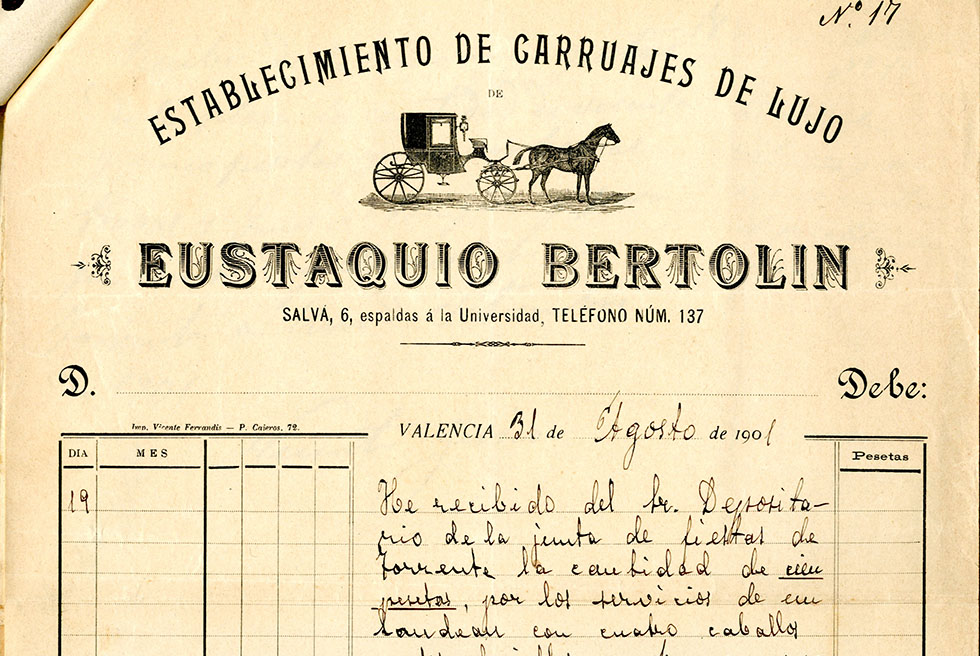 Nº 17
ESTABLECIMIENTO DE CARRUAJES DE LUJO
DE
EUSTAQUIO BERTOLIN
SALVÁ, 6, espaldas á la Universidad, TELÉFONO NÚM. 137
D. Debe:
Imp. Vicente Ferrandis — P. Cajeros, 72.
VALENCIA 31 de Agosto de 1901
DIA MES Pesetas
19 He recibido del Sr. Deposita-
rio de la junta de fiestas de
Torrente la cantidad de cien
pesetas, por los servicios de un
landeau con cuatro caballos